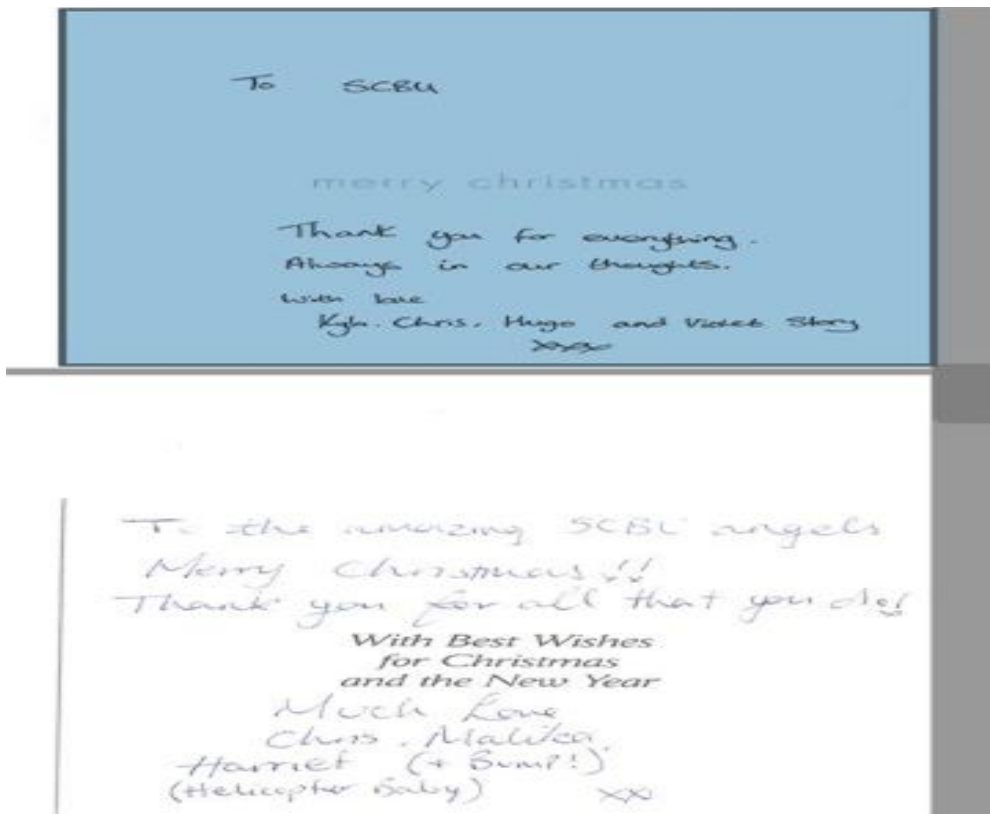 To SCBU
merry christmas
Thank you for everything.
Always in our thoughts.
With love
Chris, Hugo and Violet Story
xxxx
To the amazing SCBU angels
Merry Christmas!!
Thank you for all that you do!
With Best Wishes
for Christmas
and the New Year
Much Love
Chris, Malika,
Harriet (+ Bump!)
(Helicopter Baby) xx